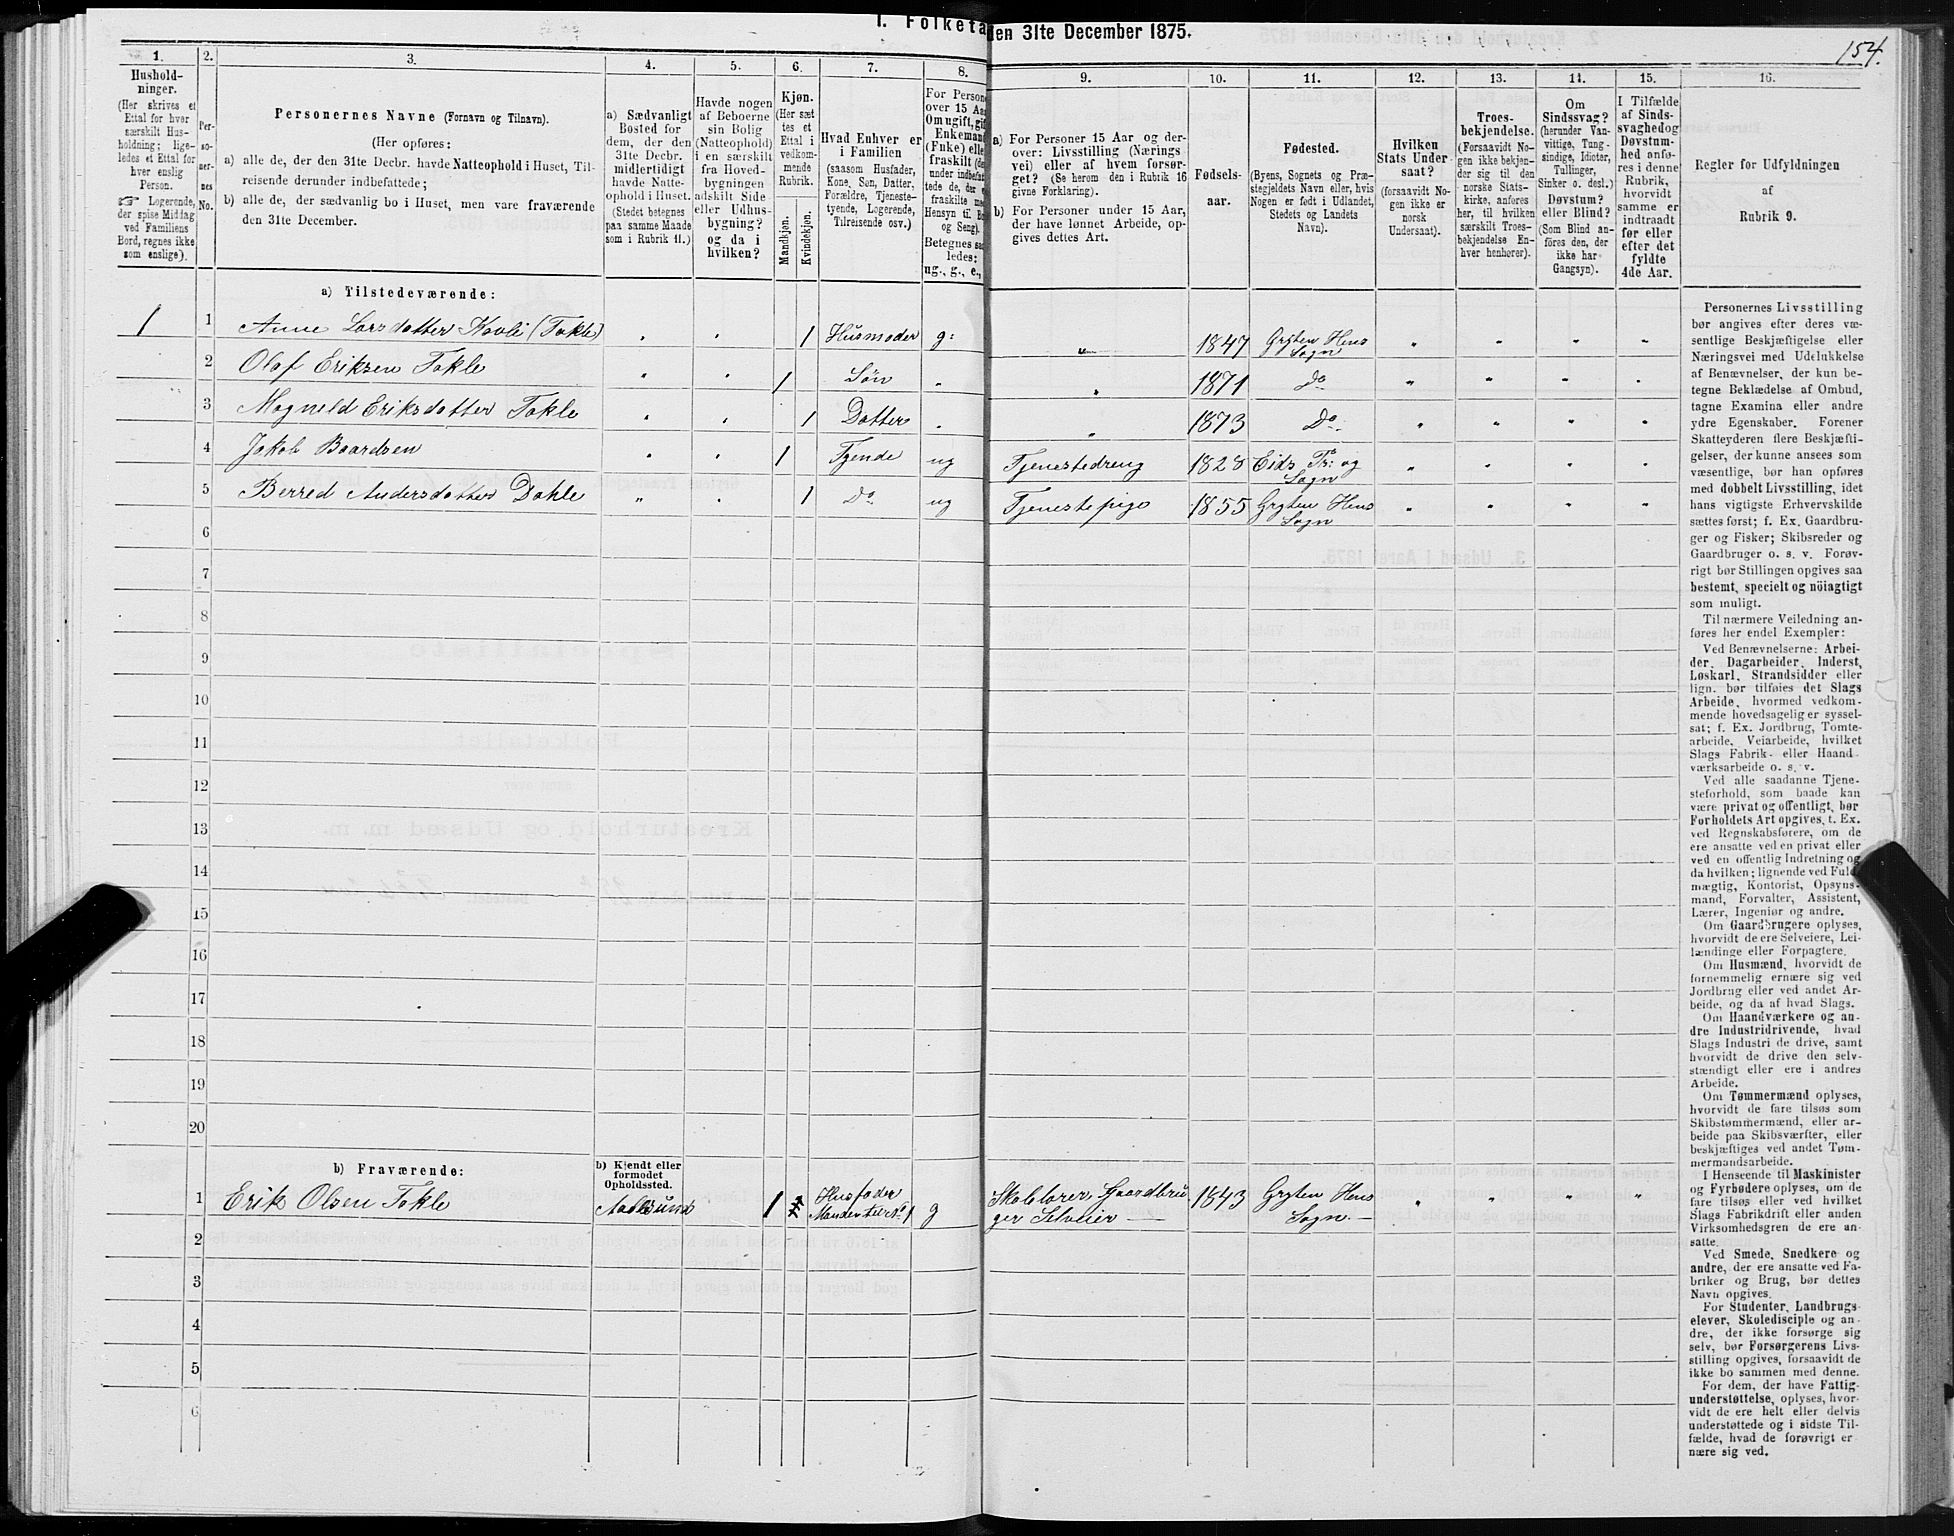 I. Folketa
den 31te December 1875.
154.
1.
Hushold-
ninger.
(Her skrives et
Ettal for hver
særskilt Hus-
holdning; lige-
ledes et Ettal for
hver enslig
Person.
Logerende,
der spise Middag
ved Familiens
Bord, regnes ikke
som enslige).
2.
Per-
so-
ner-
nes
No.
3.
Personernes Navne (Fornavn og Tilnavn).
(Her opføres:
a) alle de, der den 31te Decbr. havde Natteophold i Huset, Til-
reisende derunder indbefattede;
b) alle de, der sædvanlig bo i Huset, men vare fraværende
den 31te December.
4.
a) Sædvanligt
Bosted for
dem, der den
31te Decbr.
midlertidigt
havde Natte-
ophold i Huset.
(Stedet betegnes
paa samme Maade
som i Rubrik 11.)
5.
Havde nogen
af Beboerne
sin Bolig
(Natteophold)
i en særskilt
fra Hoved-
bygningen
adskilt Side
eller Udhus-
bygning?
og da i
hvilken?
6.
Kjøn.
(Her sæt
tes et
Ettal i
vedkom-
mende
Rubrik.
Mandkjøn.
Kvindekjøn.
7.
Hvad Enhver er
i Familien
(saasom Husfader,
Kone, Søn, Datter,
Forældre, Tjeneste-
tyende, Logerende,
Tilreisende osv.)
8.
For Persone
over 15 Aar
Om ugift, gift
Enkemand
(Enke) elle
fraskilt (de
under indbefat
tede de, der e
fraskilte med
Hensyn til Bo
og Seng).
Betegnes saa
ledes:
ug., g., e.,
9.
a) For Personer 15 Aar og der-
over: Livsstilling (Nærings
vei) eller af hvem forsør-
get? (Se herom den i Rubrik 16
givne Forklaring).
b) For Personer under 15 Aar,
der have lønnet Arbeide, op-
gives dettes Art.
10.
Fødsels-
aar.
11.
Fødested.
(Byens, Sognets og Præ-
stegjeldets Navn eller, hvis
Nogen er født i Udlandet,
Stedets og Landets
Navn).
12.
Hvilken
Stats Under
saat?
(forsaavidt No-
gen ikke er
norsk
Undersaat).
13.
Troes-
bekjendelse.
(Forsaavidt No-
gen ikke bekjen-
der sig til den
norske Stats-
kirke, anføres
her, til hvilken
særskilt Troes-
bekjendelse En-
hver henhører).
14.
Om
Sindssvag?
(herunder Van-
vittige, Tung-
sindige, Idioter,
Tullinger,
Sinker o. desl.)
Døvstum?
eller Blind?
(Som Blind an-
føres den, der
ikke har
Gangsyn).
15.
I Tilfælde
af Sinds-
svaghedog
Døvstum-
hed anfø-
res i denne
Rubrik,
hvorvidt
samme er
indtraadt
før eller
efter det
fyldte
4de Aar.
16.
Regler for Udfyldningen
af
Rubrik 9.
a) Tilstedeværende:
1 1 Anne Larsdatter Kavli (Tokle) " " 1 Husmoder g: " 1847 Gryten Hens Sogn " " " "
2 Olaf Eriksen Tokle " " 1 Søn " " 1871 Do " " " "
3 Magneld Eriksdatter Tokle " " 1 Datter " " 1873 Do " " " "
4 Jakob Baardsen " " 1 Tyende ug Tjenestedreng 1828 Eids Pr: og Sogn " " " "
5 Berred Andersdatter Dahle " " 1 Do ug Tjenestepige 1855 Gryten Hens Sogn " " " "
6
7
8
9
10
11
12
13
14
15
16
17
18
19
20
b) Fraværende:
b) Kjendt eller
formodet
Opholdssted.
1 Erik Olsen Tokle Aalesund 1 Husfader g Skolelærer, Gaardbru 1843 Gryten Hens " " " "
ger Selveier — Sogn. —
2
3
4
5
6
Personernes Livsstilling
bør angives efter deres væ-
sentlige Beskjæftigelse eller
Næringsvei med Udelukkelse
af Benævnelser, der kun be-
tegne Beklædelse af Ombud,
tagne Examina eller andre
ydre Egenskaber. Forener
Skatteyderen flere Beskjæfti-
gelser, der kunne ansees som
væsentlige, bør han opføres
med dobbelt Livsstilling, idet
hans vigtigste Erhvervskilde
sættes først; f. Ex. Gaardbru-
ger og Fisker; Skibsreder og
Gaardbruger o. s. v. Forøv-
rigt bør Stillingen opgives saa
bestemt, specielt og nöiagtigt
som muligt.
Til nærmere Veiledning an-
føres her endel Exempler:
Ved Benævnelserne: Arbei-
der, Dagarbeider, Inderst,
Løskarl, Strandsidder eller
lign. bør tilføies det Slags
Arbeide, hvormed vedkom-
mende hovedsagelig er syssel-
sat; f. Ex. Jordbrug, Tomte-
arbeide, Veiarbeide, hvilket
Slags Fabrik- eller Haand-
værksarbeide o. s. v.
Ved alle saadanne Tjene-
steforhold, som baade kan
være privat og offentligt, bør
Forholdets Art opgives, t. Ex.
ved Regnskabsførere, om de
ere ansatte ved en privat eller
ved en offentlig Indretning og
da hvilken; lignende ved Fuld-
mægtig, Kontorist, Opsyns-
mand, Forvalter, Assistent,
Lærer, Ingeniør og andre.
Om Gaardbrugere oplyses,
hvorvidt de ere Selveiere, Lei-
lændinge eller Forpagtere.
Om Husmænd, hvorvidt de
fornemmelig ernære sig ved
Jordbrug eller ved andet Ar-
beide, og da af hvad Slags.
Om Haandværkere og an-
dre Industridrivende, hvad
Slags Industri de drive, samt
hvorvidt de drive den selv-
stændigt eller ere i andres
Arbeide.
Om Tømmermænd oplyses,
hvorvidt de fare tilsøs som
Skibstømmermænd, eller ar-
beide paa Skibsværfter, eller
beskjæftiges ved andet Tøm-
mermandsarbeide.
I Henseende til Maskinister
og Fyrbødere oplyses, om de
fare tilsøs eller ved hvilket
Slags Fabrikdrift eller anden
Virksomhedsgren de ere an-
satte.
Ved Smede, Snedkere og
andre, der ere ansatte ved Fa-
briker og Brug, bør dettes
Navn opgives.
For Studenter, Landbrugs-
elever, Skoledisciple og an-
dre, der ikke forsørge sig
selv, bør Forsørgerens Livs-
stilling opgives, forsaavidt de
ikke bo sammen med denne.
For dem, der have Fattig-
understøttelse, oplyses, hvor-
vidt de ere helt eller delvis
understøttede og i sidste Til-
fælde, hvad de forøvrigt er-
nære sig ved.